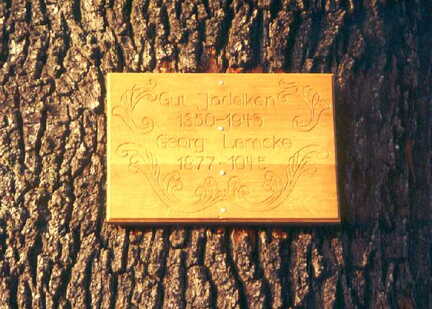 Gut Jodeiken
1350-1945
Georg Lemcke
1877-1945